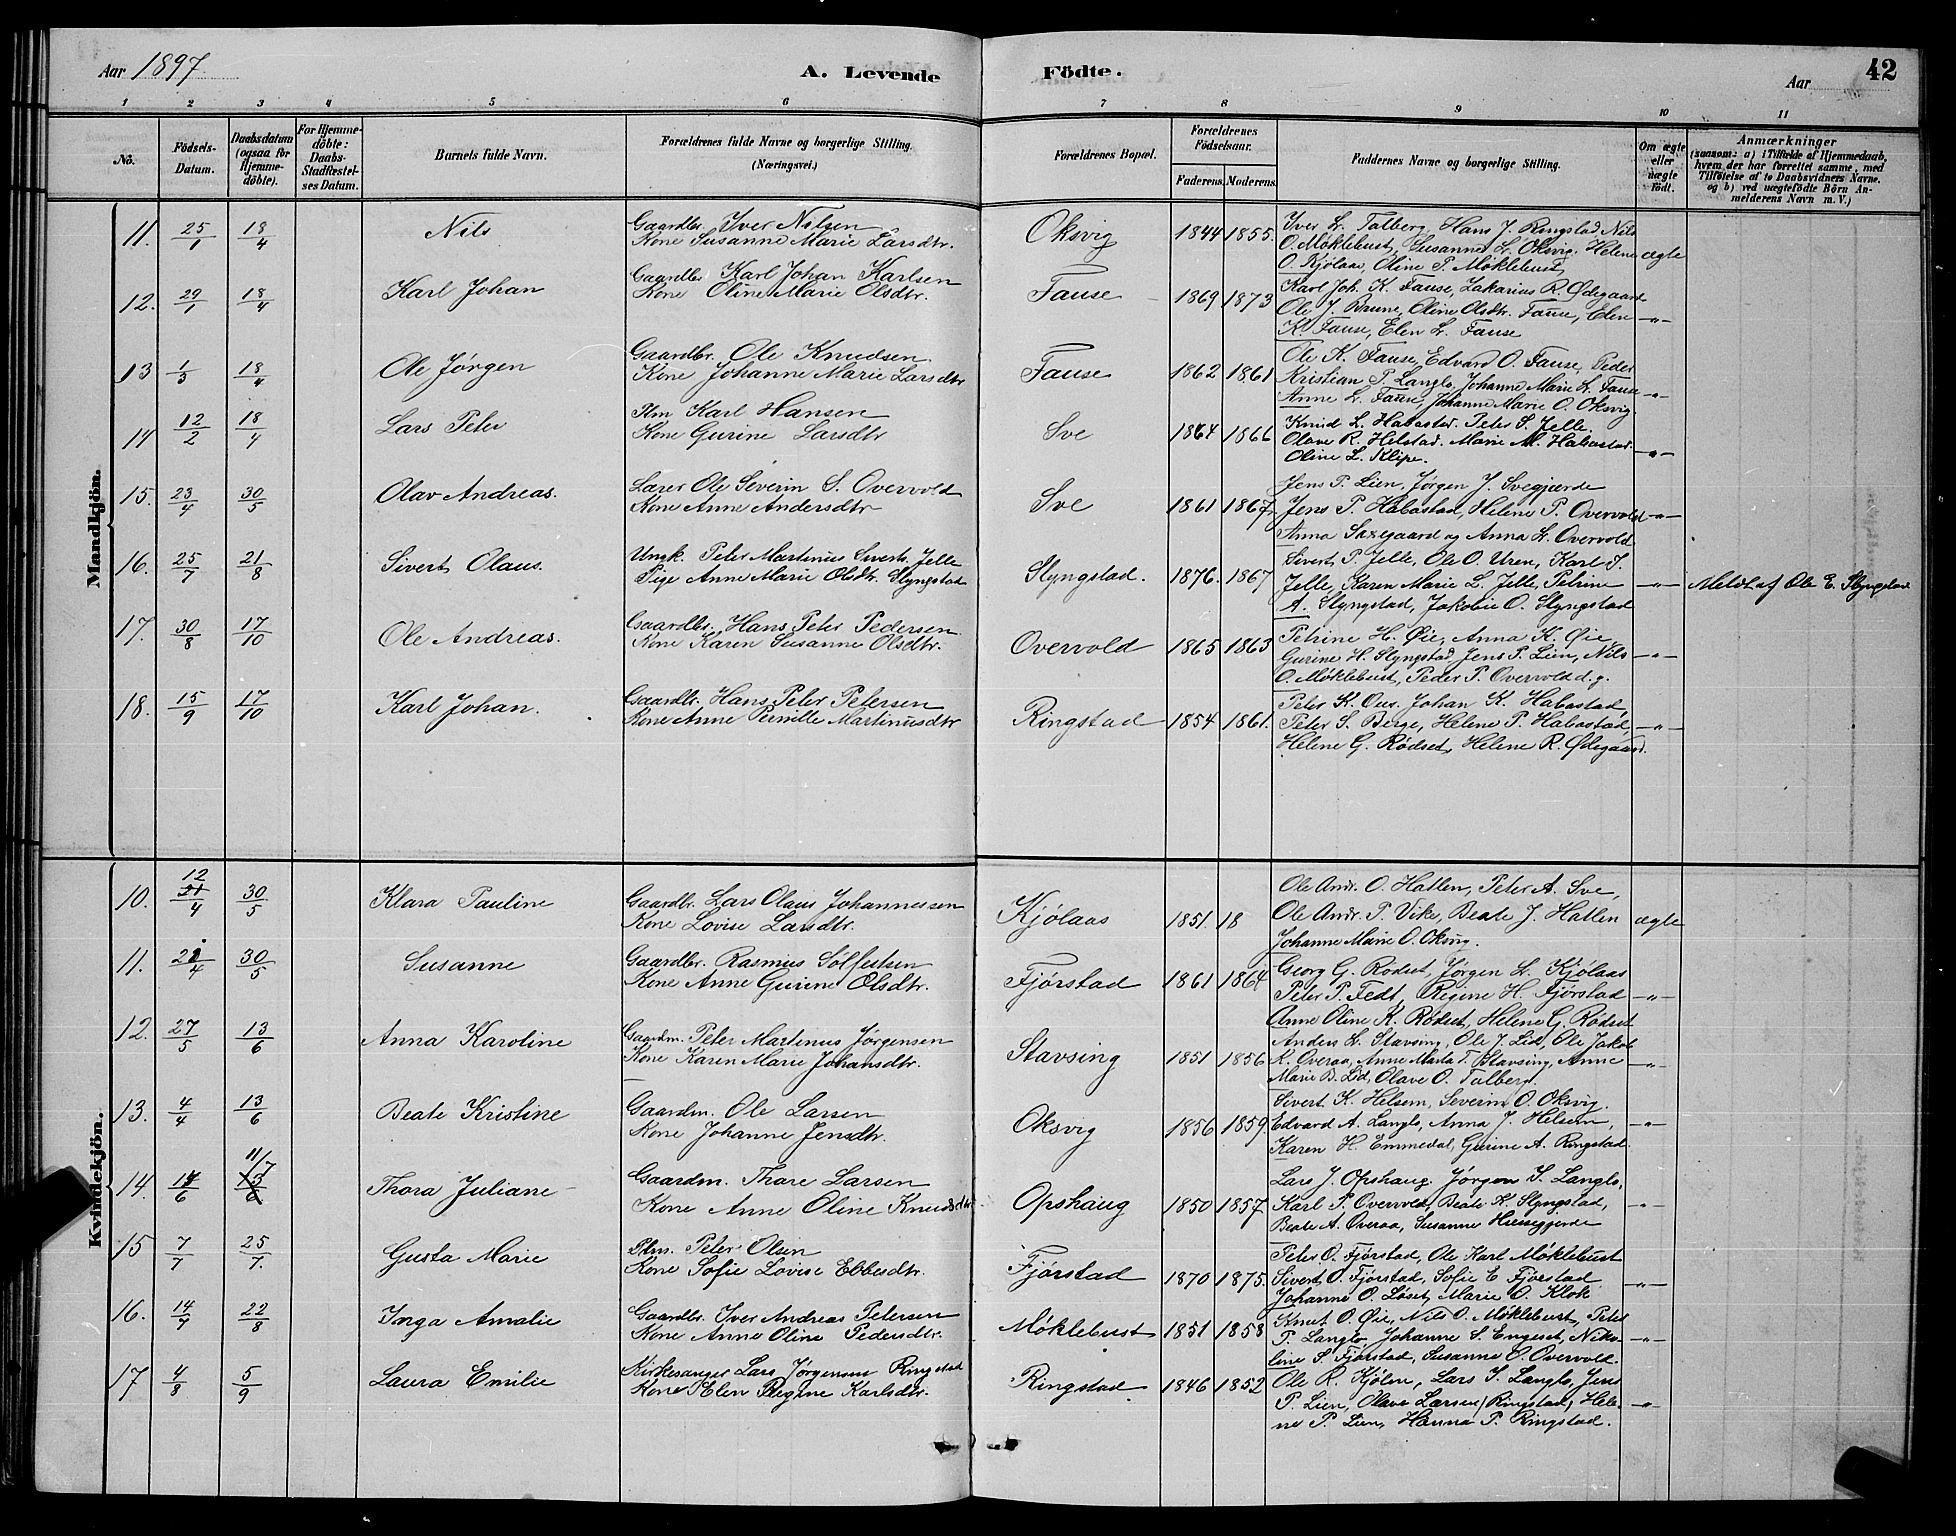 Aar 1897.
A. Levende Födte.
Aar
42
1 2 3 4 5 6 7 8 9 10 11
No.
Födsels-Datum.
Daabsdatum (ogsaa for Hjemme-döbte).
For Hjemme-döbte: Daabs-Stadfæstel-ses Datum.
Barnets fulde Navn.
Forældrenes fulde Navne og borgerlige Stilling. (Næringsvei.)
Forældrenes Bopæl.
Forældrenes Födselsaar.
Faderens. Moderens.
Faddernes Navne og borgerlige Stilling.
Om ægte eller uægte födt.
Anmærkninger
(saasom: a) i Tilfælde af Hjemmedaab, hvem der har forrettet samme, med Tilföielse af to Daabsvidners Navne. og b) ved uægtefödte Börn An-melderens Navn m. V.)
Mandkjön.
11. 25/1 18/4 Nils
Gaardbr. Iver Nilsen
Kone Susanne Marie Larsdtr.
Oksvig 1844 1855.
Iver L. Talberg, Hans J. Ringstad, Nils
O. Møklebust, Susanne L. Oksvig, Helene
O. Kjølaas, Oline P. Møklebust,
ægte
12. 29/1 18/4 Karl Johan
Gaardbr. Karl Johan Karlsen
Kone Oline Marie Olsdtr.
Fause 1869 1873
Karl Joh. K. Fause, Zakarias R. Ødegaard
Ole J. Brune, Oline Olsdtr. Fause, Elen
K. Fause, Elen L. Fause
-"-
13 1/3 18/4 Ole Jørgen
Gaardbr. Ole Knudsen
Kone Johanne Marie Larsdtr
Fause 1862 1861
Ole K. Fause, Edvard O. Fause, Peder
Kristian P. Langlo, Johanne Marie L. Fause
Anne L. Fause, Johanne Marie O. Oksvig.
-"-
14 12/2 18/4 Lars Peter
Plm Karl Hansen
Kone Gurine Larsdtr
Sve 1864 1866
Knud L. Habostad. Peter S. Jelle.
Olave R. Helstad. Marie M. Habostad.
Oline L. Klipe.
-"-
15. 23/4 30/5 Olav Andreas.
Lærer Ole Severin S. Overvold
Kone Anne Andersdtr
Sve 1861 1867
Jens P. Lien, Jørgen J. Svegjærde
Jens P. Habostad, Helene P. Overvold
Anna Saxegaard og Anna L. Overvold
-"-
16. 25/7 21/8 Sivert Olaus.
Ungk. Peter Martinus Siverts. Jelle
Pige Anne Marie Olsdtr. Slyngstad
Slyngstad. 1876. 1867
Sivert P. Jelle, Ole O. Uren, Karl S.
Jelle, Karen Marie L. Jelle, Petrine
A. Slyngstad, Jakobie O. Slyngstad
-"- Meldt af Ole E. Slyngstad
17. 30/8 17/10 Ole Andreas.
Gaardbr. Hans Peter Pedersen
Kone Karen Susanne Olsdtr.
Overvold 1865 1863
Petrine H. Øie, Anna K. Øie,
Gurine H. Slyngstad, Jens P. Lien, Nils
O. Møklebust, Peder P. Overvold d.y.
-"-
18. 15/9 17/10 Karl Johan.
Gaardbr. Hans Peter Petersen
Kone Anne Pernille Martinusdtr
Ringstad 1854 1861.
Peter K. Ous. Johan K. Habostad,
Peter S. Berge, Helene P. Habostad,
Helene G. Rødset, Helene R. Ødegaard.
-"-
Kvindekjön.
10. 12 21/4 30/5 Klara Pauline
Gaardbr. Lars Olaus Johannessen
Kone Lovise Larsdtr.
Kjølaas 1851. 18
Ole Andr. O. Hatlen, Peter A. Sve,
Ole Andr. P. Vike, Beate J. Hatlen
Johanne Marie O. Oksvig.
ægte
11. 21/4 30/5 Susanne
Gaardbr. Rasmus Solfestsen
Kone Anne Gurine Olsdtr.
Fjørstad 1861 1864
Georg G. Rødset, Jørgen L. Kjølaas
Peter P. Fedt, Regine H. Fjørstad
Anne Oline K. Rødset, Helene G. Rødset
-"-
12. 27/5 13/6 Anna Karoline
Gaardm. Peter Martinus Jørgensen
Kone Karen Marie Johansdtr.
Stavsing 1851 1856
Anders L. Stavsing, Ole J. Lid, Ole Jakob
K. Overaa, Anne Marta T. Stavsing, Anne
Marie B. Lid, Olave O. Talberg.
-"-
13. 4/4 13/6 Beate Kristine
Gaardm. Ole Larsen
Kone Johanne Jensdtr.
Oksvig 1856 1859
Sivert K. Helsem, Severin O. Oksvig.
Edvard A. Langlo, Anna J. Helsem,
Karen H. Emmedal, Gurine A. Ringstad
-"-
14. 14/6 11/7 13/6 Thora Juliane
Gaardm. Thore Larsen
Kone Anne Oline Knudsdtr
Opshaug 1850 1857
Lars J. Opshaug, Jørgen S. Langlo,
Karl P. Overvold, Beate K. Slyngstad,
Beate A. Overaa, Susanne
-"-
15 7/7 25/7. Gusta Marie
Plm. Peter Olsen
Kone Sofie Lovise Ebbesdtr.
Fjørstad 1870 1875.
Peter O. Fjørstad, Ole Karl Møklebust
Sivert O. Fjørstad, Sofie E Fjørstad
Johanne O. Løset, Marie O. Klok
-"-
16. 14/7 22/8 Inga Amalie
Gaardbr. Iver Andreas Petersen
Kone Anne Oline Pedersdtr.
Møklebust 1851 1858
Knut O. Øie, Nils O. Møklebust, Peter
P. Langlo, Johanne S. Engeset, Niko-
line S. Fjørstad, Susanne O. Overvold.
-"-
17 4/8 5/9 Laura Emilie
Kirkesanger Lars Jørgensen Ringstad
Kone Elen Regine Karlsdtr.
Ringstad 1846 1852
Ole R. Kjølen, Lars S. Langlo, Jens
P. Lien, Olave Larsen Ringstad, Hele-
ne P. Lien, Hanna P. Ringstad.
-"-